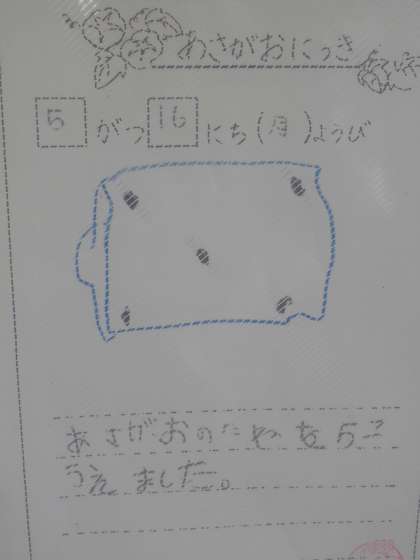 あさがおにっき
5がつ16にち(月)ようび
あさがおのたねを5こ
うえました。